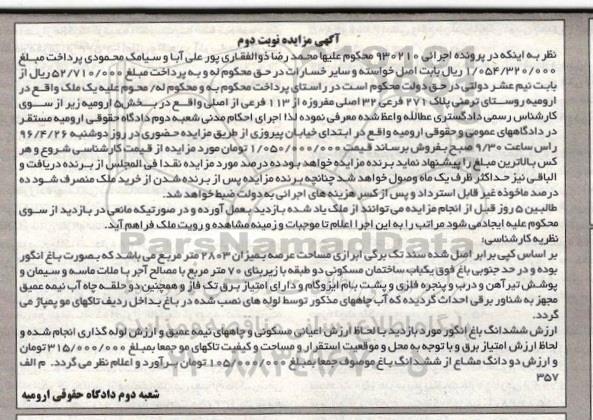 آگهی مزایده نوبت دوم
نظر به اینکه در پرونده اجرائی 930210 محکوم علیها محمد رضا ذوالفقاری پور علی آبا و سیامک محمودی پرداخت مبلغ
1/054/320/000 ریال بابت اصل خواسته و سایر خسارات در حق محکوم له و به پرداخت مبلغ 52/710/000 ریال از
بابت نیم عشر دولتی در حق دولت محکوم است در راستای پرداخت محکوم به و محکوم له/ محوم علیه یک ملک واقع در
ارومیه روستای ترمنی پلاک 271 فرعی 32 اصلی مفروزه از 113 فرعی از اصلی واقع در بخش 5 ارومیه زیر از سوی
کارشناس رسمی دادگستری عطااله واعظ شده معرفی نموده لذا اجرای احکام مدنی شعبه دوم دادگاه حقوقی ارومیه مستقر
در دادگاههای عمومی و حقوقی ارومیه واقع در ابتدای خیابان پیروزی از طریق مزایده حضوری در روز دوشنبه 96/4/26
راس ساعت 9/30 صبح بفروش برساند قیمت 1/050/000/000 تومان مورد مزایده از قیمت کارشناسی شروع و هر
کس بالاترین مبلغ را پیشنهاد نماید برنده مزایده خواهد بود ده درصد مورد مزایده نقدا فی المجلس از برنده دریافت و
الباقی نیز حداکثر ظرف یک ماه وصول خواهد شد چنانچه برنده مزایده پس از برنده شدن از خرید ملک منصرف شود ده
درصد ماخوذه غیر قابل استرداد و پس از کسر هزینه های اجرائی به دولت ضبط خواهد شد.
طالبین 5 روز قبل از انجام مزایده می توانند از ملک یاد شده بازدید بعمل آورده و در صورتیکه مانعی در بازدید از سوی
محکوم علیه ایجاد می شود مراتب را به این اجرا اعلام تا موجبات و زمینه مشاهده و رویت ملک فراهم آید.
نظریه کارشناسی:
بر اساس کپی برابر اصل شده سند تک برگی ابرازی مساحت عرصه بمیزان 2803 متر مربع می باشد که بصورت باغ انگور
بوده و در حد جنوبی باغ فوق یکباب ساختمان مسکونی دو طبقه با زیربنای 70 متر مربع با مصالح آجر با ملات ماسه و سیمان و
پوشش تیر آهن و درب و پنجره فلزی و پشت بام ایزوگام و دارای امتیاز برق تک فاز و همچنین دو حلقه چاه آب نیمه عمیق
مجهز به شناور برقی احداث گردیده که آب چاههای مذکور توسط لوله های نصب شده در باغ بداخل ردیف تاکهای مو پمپاژ می
گردد.
ارزش ششدانگ باغ انگور مورد بازدید با لحاظ ارزش اعیانی مسکونی و چاههای نیمه عمیق و ارزش لوله گذاری انجام شده و
لحاظ ارزش امتیاز برق و با توجه به محل و موقعیت استقرار و مساحت و کیفیت تاکهای مو جمعا بمبلغ 315/000/000 تومان
و ارزش دو دانگ مشاع از ششدانگ باغ موصوف جمعا بمبلغ 105/000/000 تومان برآورد و اعلام نظر می گردد. م الف
357
شعبه دوم دادگاه حقوقی ارومیه
ParsNamadData